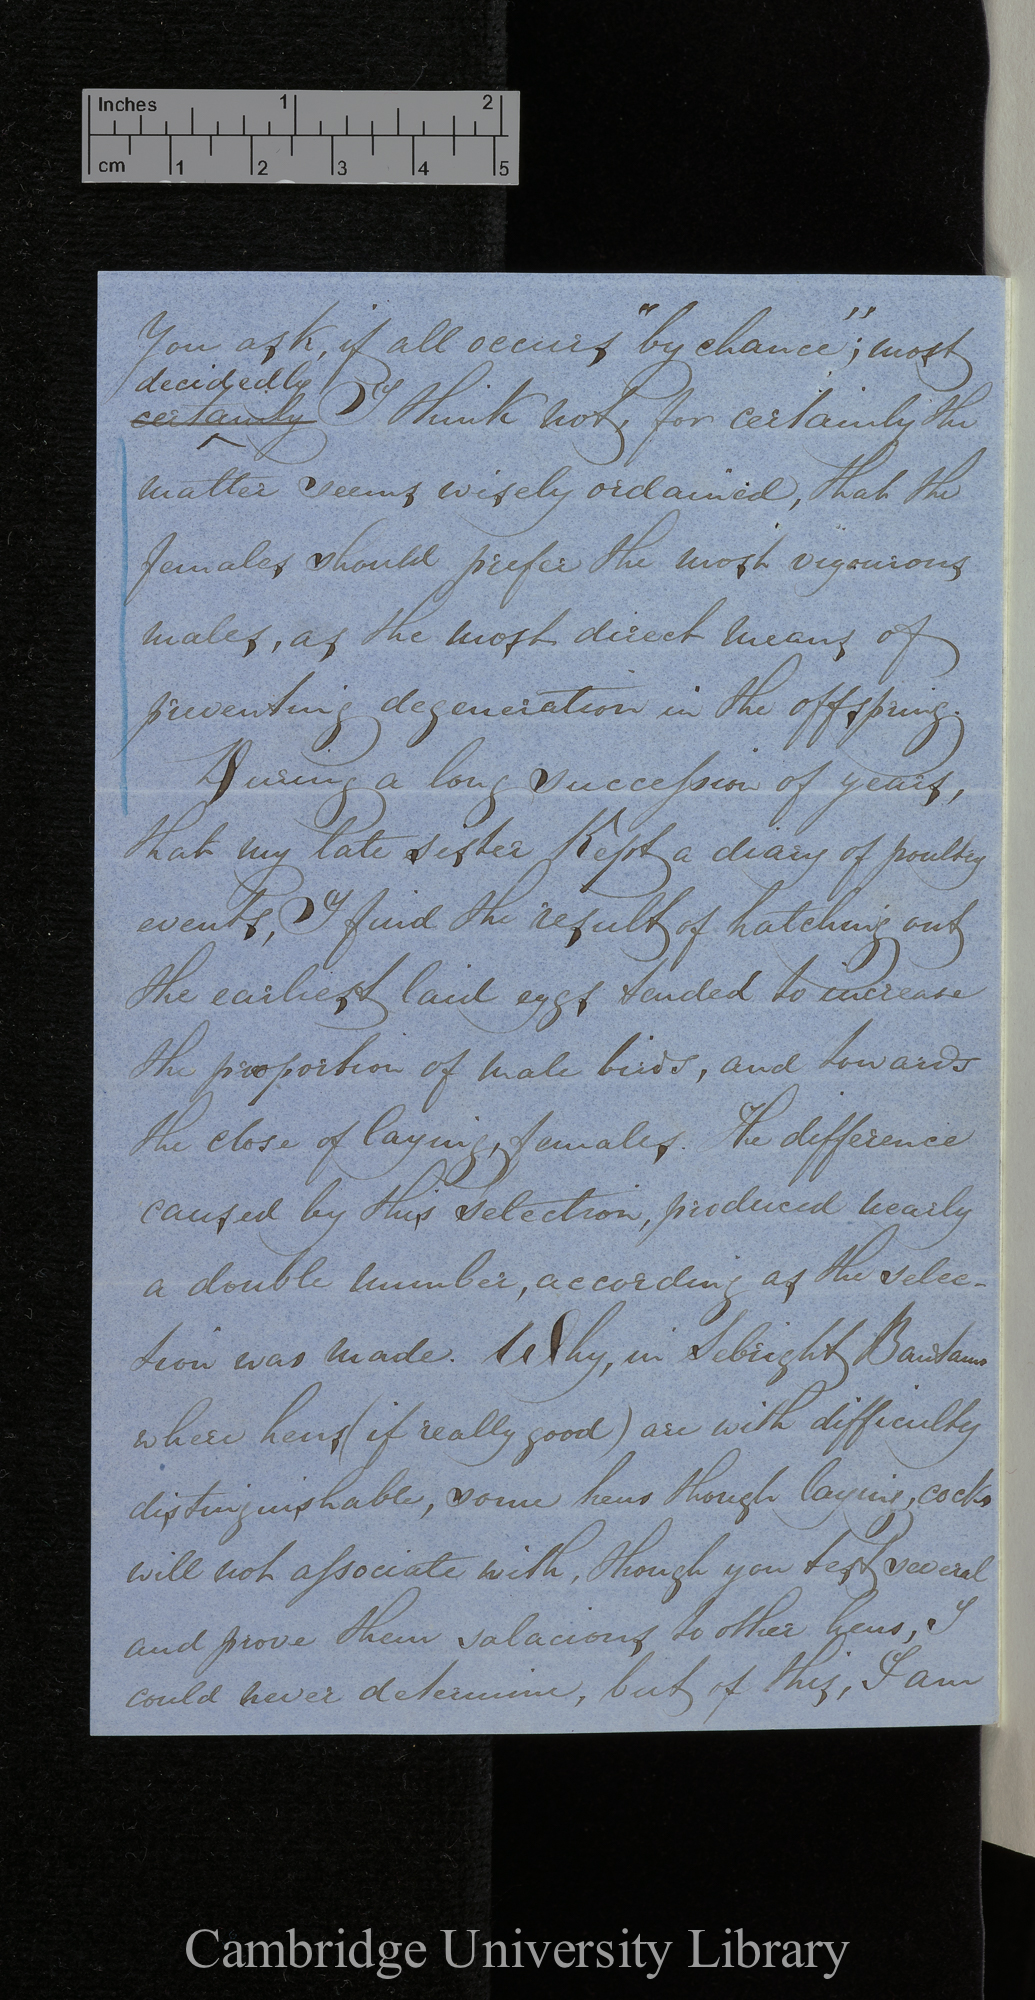 Inches 1 2
cm 1 2 3 4 5
You ask, if all occurs "by chance"; most
decidedly
certainly I think not, for certainly the
matter seems wisely ordained, that the
females should prefer the most vigourous
males, as the most direct means of
preventing degeneration in the offspring.
During a long succession of years,
that my late sister kept a diary of poultry
events, I find the result of hatching out
the earliest laid eggs tended to increase
the proportion of male birds, and towards
the close of laying, females. The difference
caused by this selection, produced nearly
a double number, according as the selec-
tion was made. Why, in Sebright Bantams
where hens (if really good) are with difficulty
distinguishable, some hens though laying, cocks
will not associate with, though you test several
and prove them salacious to other hens, I
could never determine, but of this, I am
Cambridge University Library